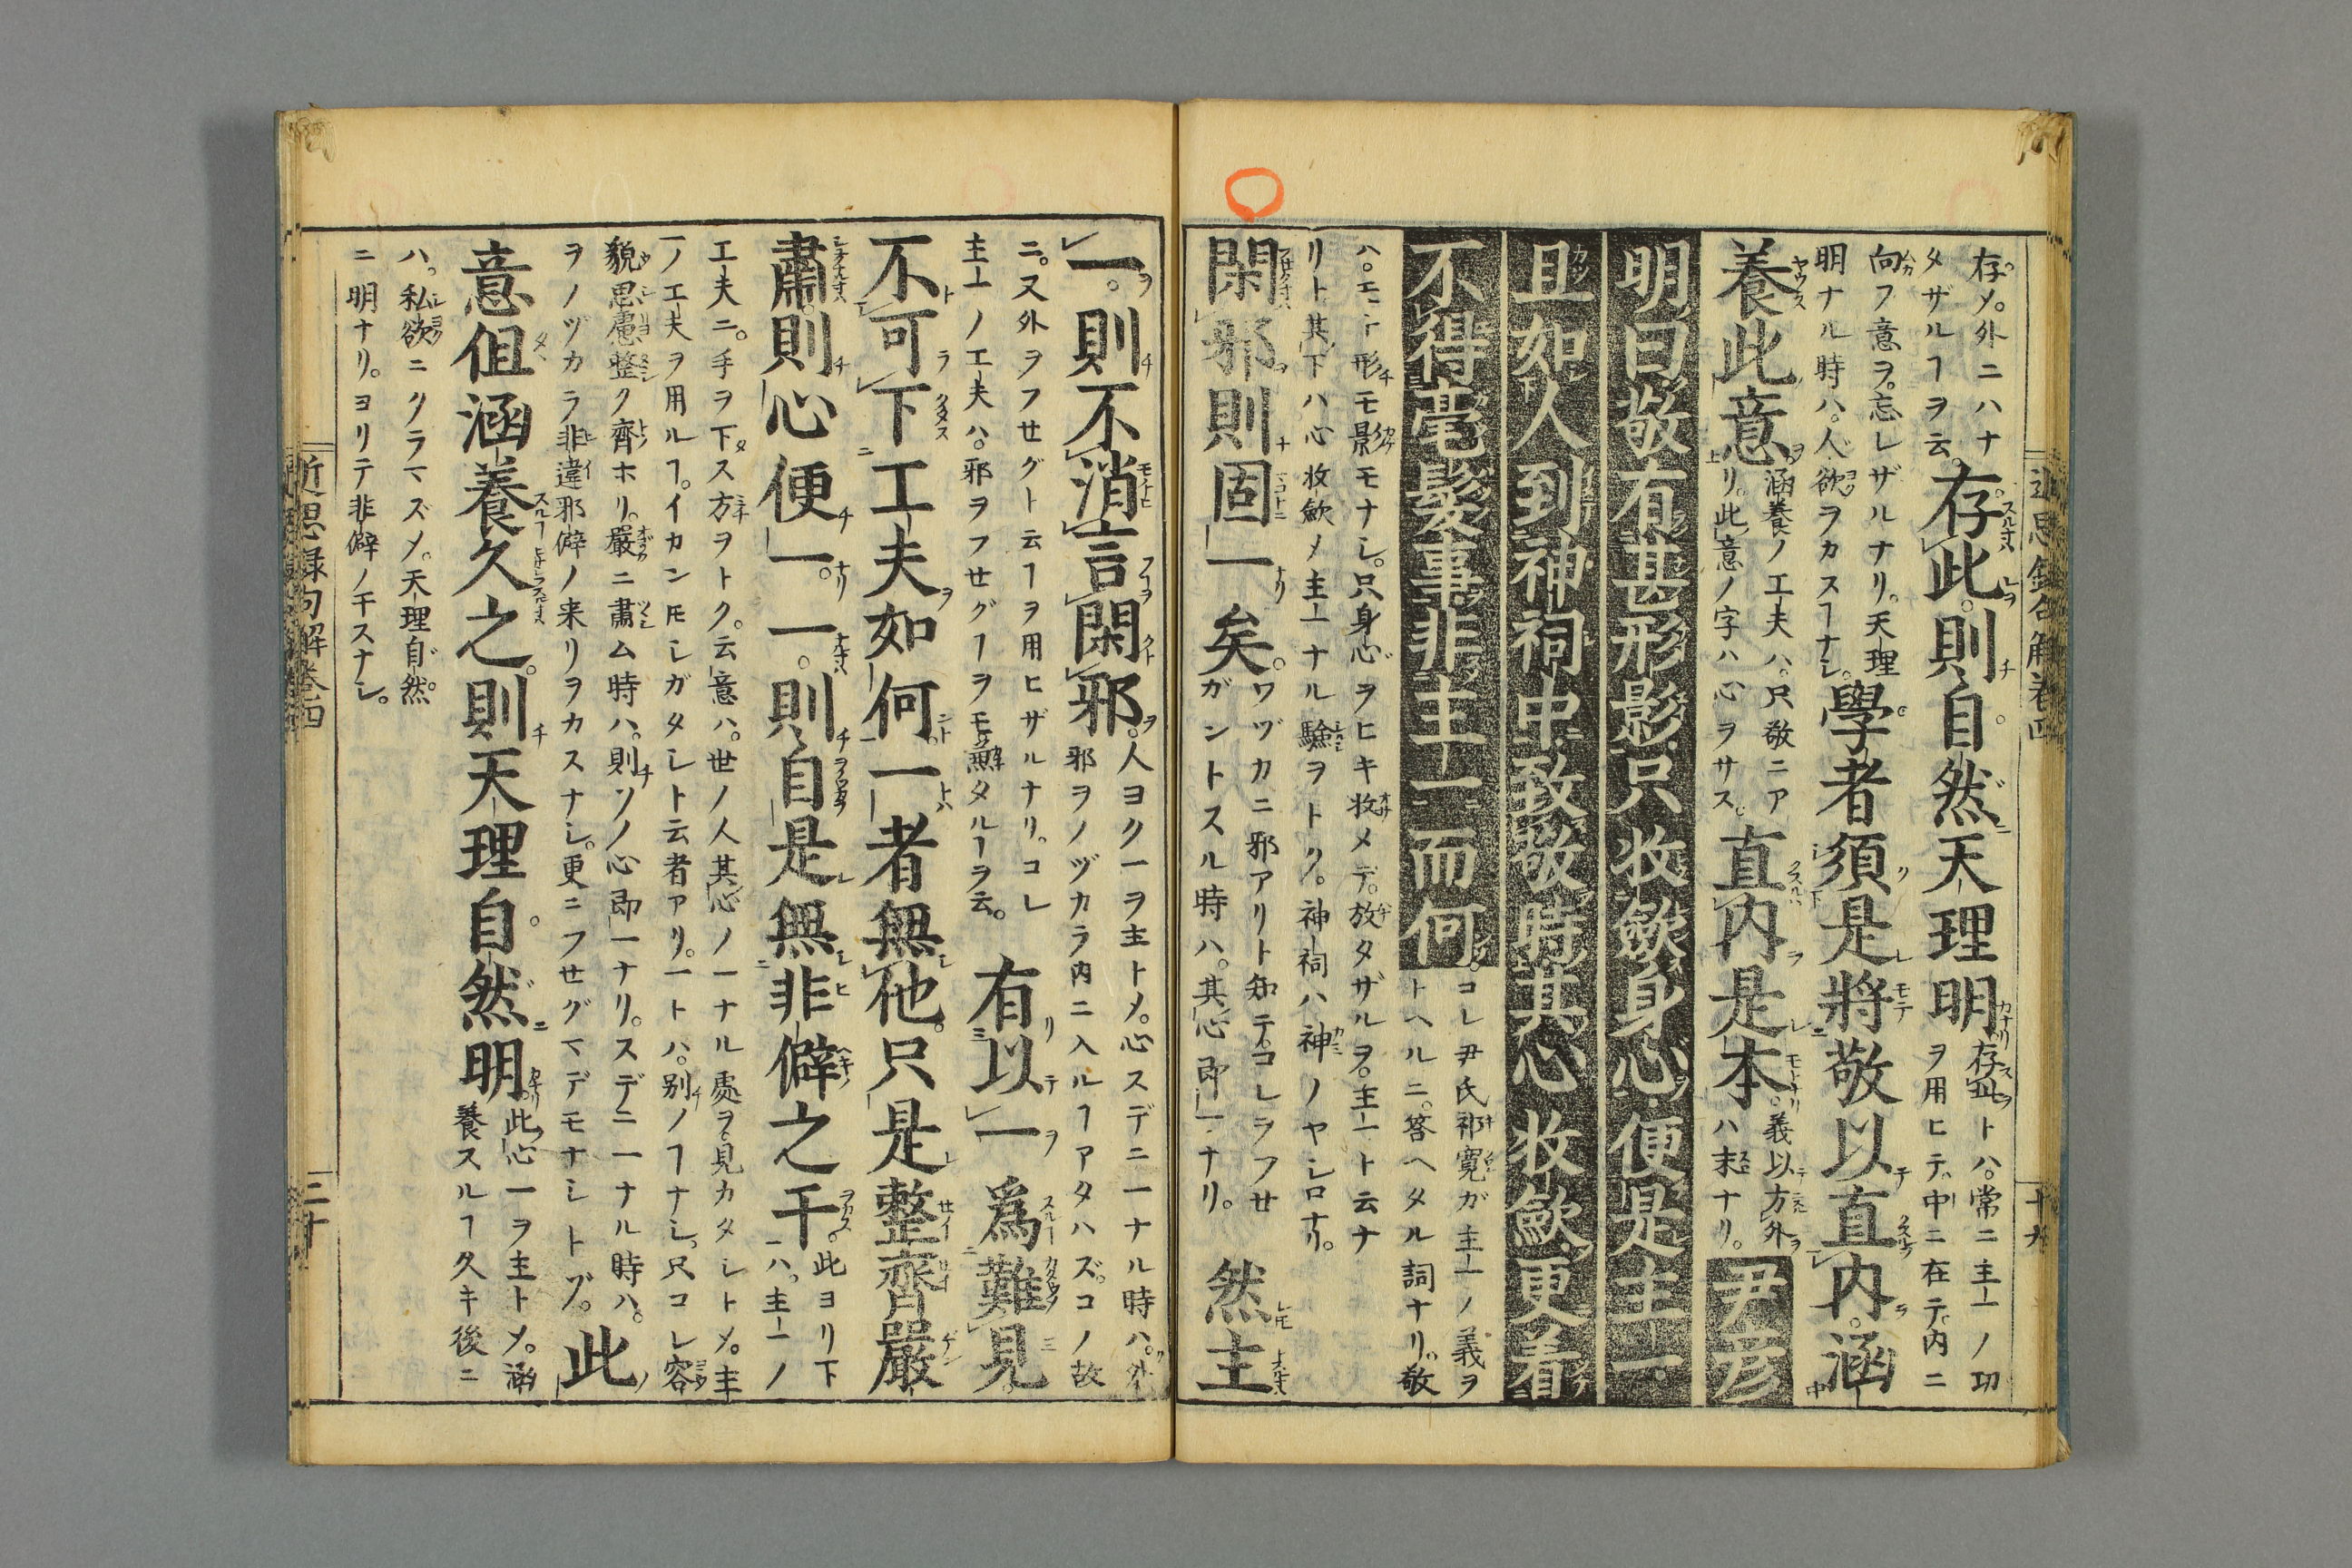 存メ。外ニハナ
タザルヿヲ云。
存此。則自然天理明
存此トハ。常ニ主一ノ功
ヲ用ヒテ。中ニ在テ。内ニ
向フ意ヲ。忘レザルナリ。天理
明ナル時ハ。人欲ヲカスヿナシ。
學者須是將敬以直内。涵
養此意
涵養ノ工夫ハ。只敬ニア
リ。此意ノ字ハ心ヲサス。
直内是本。
義以方外
ハ末ナリ。
尹彦
明曰敬有甚形影只收斂身心便是主一。
且如人到神祠中致敬時其心收斂更着
不得毫髮事非主一而何。
コレ尹氏祁寛ガ主一ノ義ヲ
トヘルニ。答ヘタル詞ナリ。敬
ハ。モト形モ影モナシ。只身心ヲヒキ收メテ。放タザルヲ。主一ト云ナ
リト其下ハ心收斂メ主一ナル驗ヲトク。神祠ハ神ノヤシロナリ。
閑邪則固一矣。
ワヅカニ邪アリト知テ。コレヲフセ
ガントスル時ハ。其心即一ナリ。
然主
一。則不消言閑邪。
人ヨク一ヲ主トメ。心スデニ一ナル時ハ。外
邪ヲノヅカラ内ニ入ルヿアタハズ。コノ故
ニ。又外ヲフセグト云ヿヲ用ヒザルナリ。コレ
主一ノ工夫ハ。邪ヲフセグヿヲモ兼タルヿヲ云。
有以一爲難見。
不可下工夫如何。一者無他。只是整齊嚴
肅。則心便一。一。則自是無非僻之干。
此ヨリ下
ハ。主一ノ
工夫ニ。手ヲ下ス方ヲトク。云意ハ。世ノ人其心ノ一ナル處ヲ。見カタシトメ。主
一ノ工夫ヲ用ルヿ。イカントモシガタシト云者アリ。一トハ。別ノヿナシ。只コレ容
貌思慮整ク齊ホリ。嚴ニ肅ム時ハ。則ソノ心即一ナリ。スデニ一ナル時ハ。
ヲノヅカラ非違邪僻ノ来リヲカスナシ。更ニフセグマデモナシトゾ。
此
意但涵養久之。則天理自然明。
此心一ヲ主トメ。涵
養スルヿ久キ後ニ
ハ。私欲ニクラマズメ。天理自然。
ニ明ナリ。ヨリテ非僻ノ干スナシ。
近思録句解卷四
十九
近思録句解卷四
二十